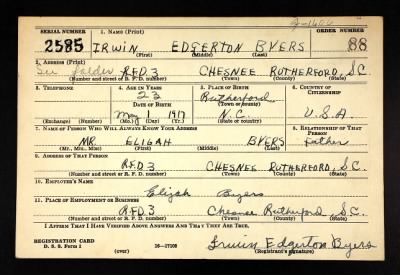 SERIAL NUMBER 1. NAME (Print) ORDER NUMBER
2585 IRWIN EDGERTON BYERS 88
(First) (Middle) (Last)
2. ADDRESS (Print)
See folder R.F.D. 3 CHESNEE RUTHERFORD, S.C.
(Number and street or R. F. D. number) (Town) (County) (State)
3. TELEPHONE 4. AGE IN YEARS 5. PLACE OF BIRTH 6. COUNTRY OF CITIZENSHIP
23 Rutherford
DATE OF BIRTH (Town or county)
May 1 1917 N.C. U.S.A.
(Exchange) (Number) (Mo.) (Day) (Yr.) (State or country)
7. NAME OF PERSON WHO WILL ALWAYS KNOW YOUR ADDRESS 8. RELATIONSHIP OF THAT PERSON
MR. ELIGAH BYERS Father
(Mr., Mrs., Miss) (First) (Middle) (Last)
9. ADDRESS OF THAT PERSON
R.F.D. 3 CHESNEE RUTHERFORD, S.C.
(Number and street or R. F. D. number) (Town) (County) (State)
10. EMPLOYER'S NAME
Elijah Byers
11. PLACE OF EMPLOYMENT OR BUSINESS
R.F.D. 3 Chesnee Rutherford S.C.
(Number and street or R. F. D. number) (Town) (County) (State)
I AFFIRM THAT I HAVE VERIFIED ABOVE ANSWERS AND THAT THEY ARE TRUE.
REGISTRATION CARD
D. S. S. Form 1 16—17105 Irwin Edgerton Byers
(over) (Registrant's signature)